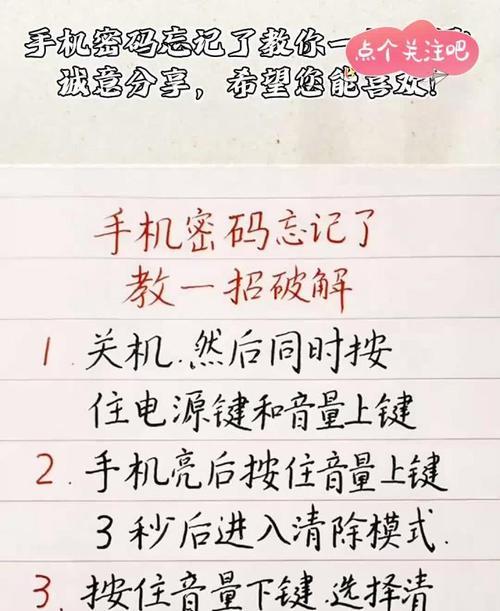 手机密码忘记了教你一
点个关注吧
诚意分享，希望您能喜欢！
手机密码忘记了
教一招破解
1.关机.然后同时按
住电源键和音量上键
2.手机亮后按住音量上键
3秒后进入清除模式.
3.按住音量下键.选择清